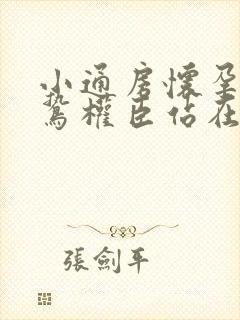 小通房懷孕
鷙權臣佔在
張劍平